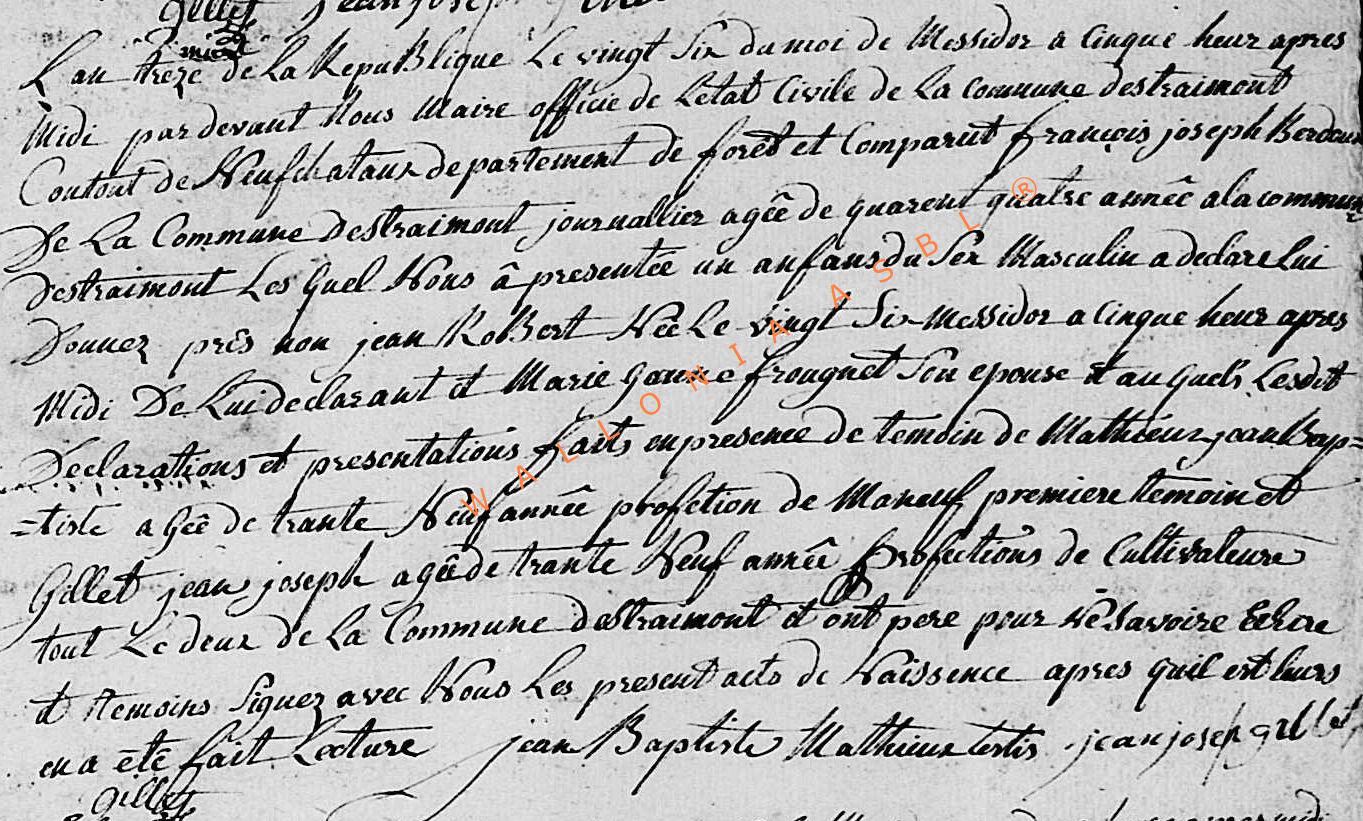 Gillet jean joseph
L'an treze de La RepuBlique Le vingt Six du moi de Messidor a Cinque heur apres
Midi par devant Nous Maire officie de Letat Civile de La Commune destraimont
Contont de Neufchataux departement de forêt et Comparut françois joseph
De La Commune destraimont journallier agêe de quarent quatre annêe a la commune
destraimont Les quel Nous â presentée un anfans du Sex Masculin a declare Lui
Donnez près non jean RoBert Née Le vingt Six Messidor a Cinque heur apres
Midi De Lui declarant et Marie frougnet Son epouse et au quels Lesdit
Declarations et presentations faits en presence de temoin de Mathieux jean Bap=
=tiste a Gêe de trante Neuf annêe profetion de premiere temoin et
Gillet jean joseph agêe de trante Neuf annêe profections de Cultivateure
tout Le deux de La Commune destraimont et ont pere pour Nê Savoire Echire
et temoins Signez avec Nous Les present acts de Naissence apres quil est leurs
en a ête fait Lecture jean Baptiste Mathieux testis jean joseph gillet
Gillet
WALLONIA ASBL ®